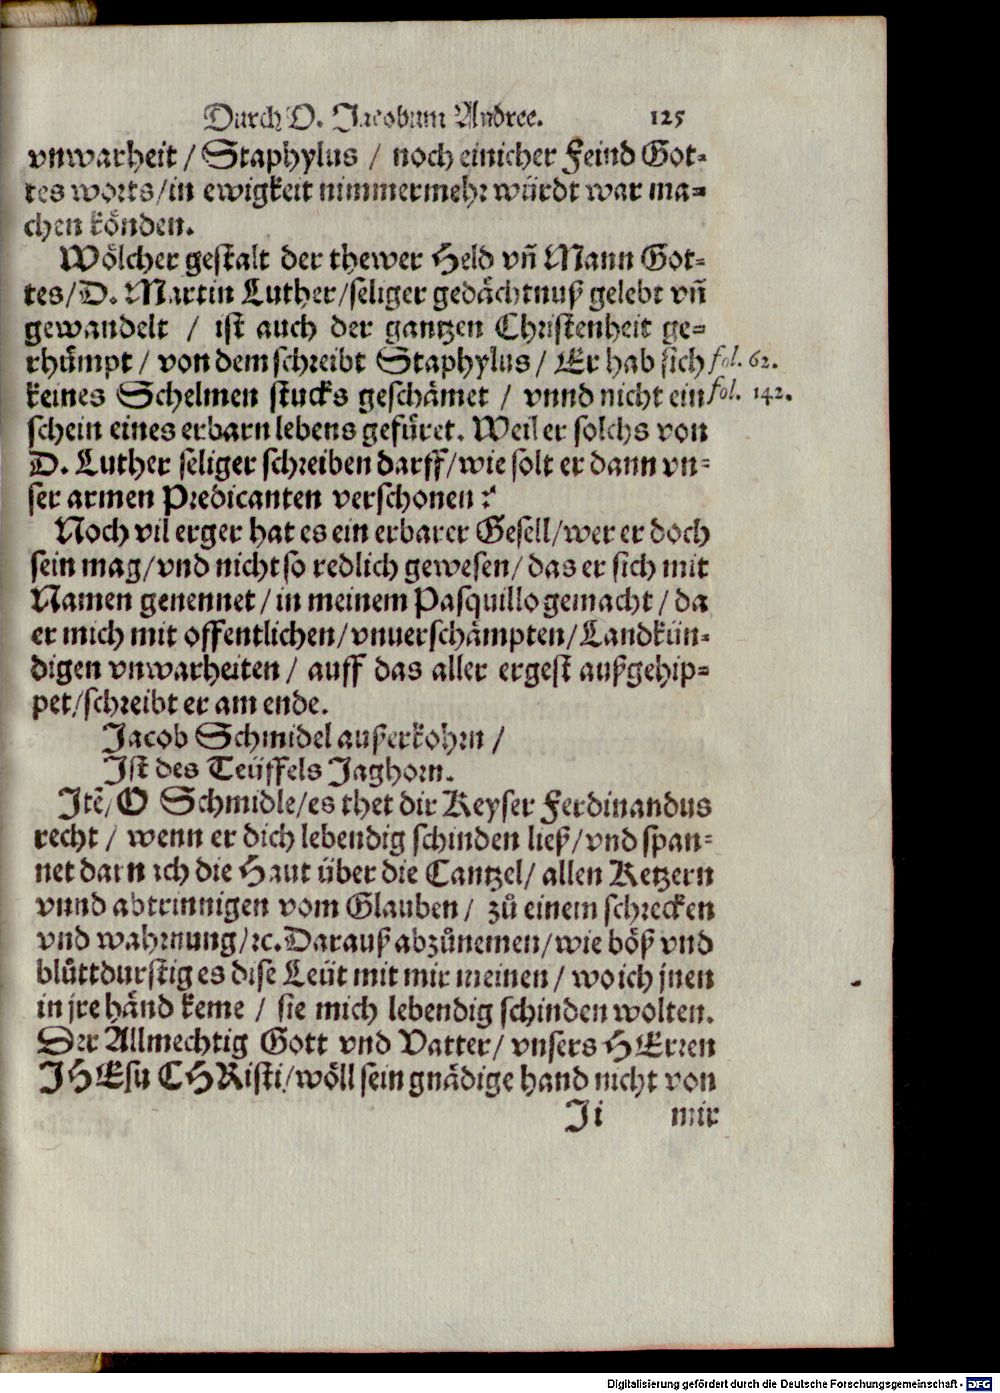 Durch D. Jacobum Andree. 125
vnwarheit / Staphylus / noch einicher Feind Got-
tes worts/in ewigkeit nimmermehr würdt war ma-
chen könden.
Wölcher gestalt der thewer Held vñ Mann Got-
tes/D. Martin Luther/seliger gedächtnuß gelebt vñ
gewandelt / ist auch der gantzen Christenheit ge-
rhümpt / von dem schreibt Staphylus / Er hab sich fol. 62.
keines Schelmen stucks geschämet / vnnd nicht ein fol. 142.
schein eines erbarn lebens gefüret. Weil er solchs von
D. Luther seliger schreiben darff/wie solt er dann vn-
ser armen Predicanten verschonen?
Noch vil erger hat es ein erbarer Gesell/wer er doch
sein mag/vnd nicht so redlich gewesen/das er sich mit
Namen genennet/in meinem Pasquillo gemacht/da
er mich mit offentlichen/vnuerschämpten/Landkün-
digen vnwarheiten / auff das aller ergest außgehip-
pet/schreibt er am ende.
Jacob Schmidel außerkohrn /
Ist des Teüffels Jaghorn.
Itē/O Schmidle/es thet dir Keyser Ferdinandus
recht / wenn er dich lebendig schinden ließ/vnd span-
net darnach die Haut über die Cantzel/ allen Ketzern
vnnd abtrinnigen vom Glauben / zů einem schrecken
vnd wahrnung/ꝛc. Darauß abzůnemen/wie böß vnd
blůttdurstig es dise Leüt mit mir meinen / wo ich jnen
in jre händ keme / sie mich lebendig schinden wolten.
Der Allmechtig Gott vnd Vatter/ vnsers HErren
JHEsu CHRisti/wöll sein gnädige hand nicht von
Ji mir
Digitalisierung gefördert durch die Deutsche Forschungsgemeinschaft - DFG